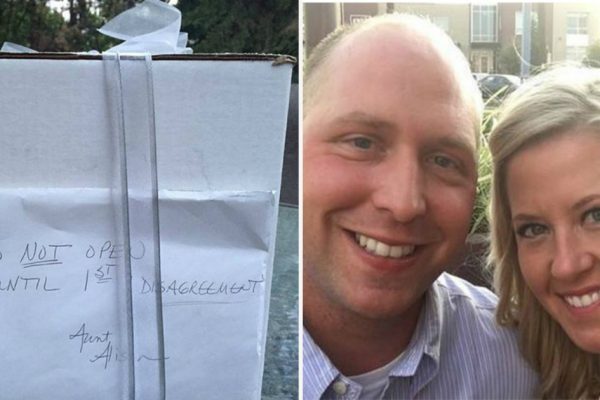 O NOT OPEN
NTIL 1ST DISAGREEMENT
Aunt
Alison